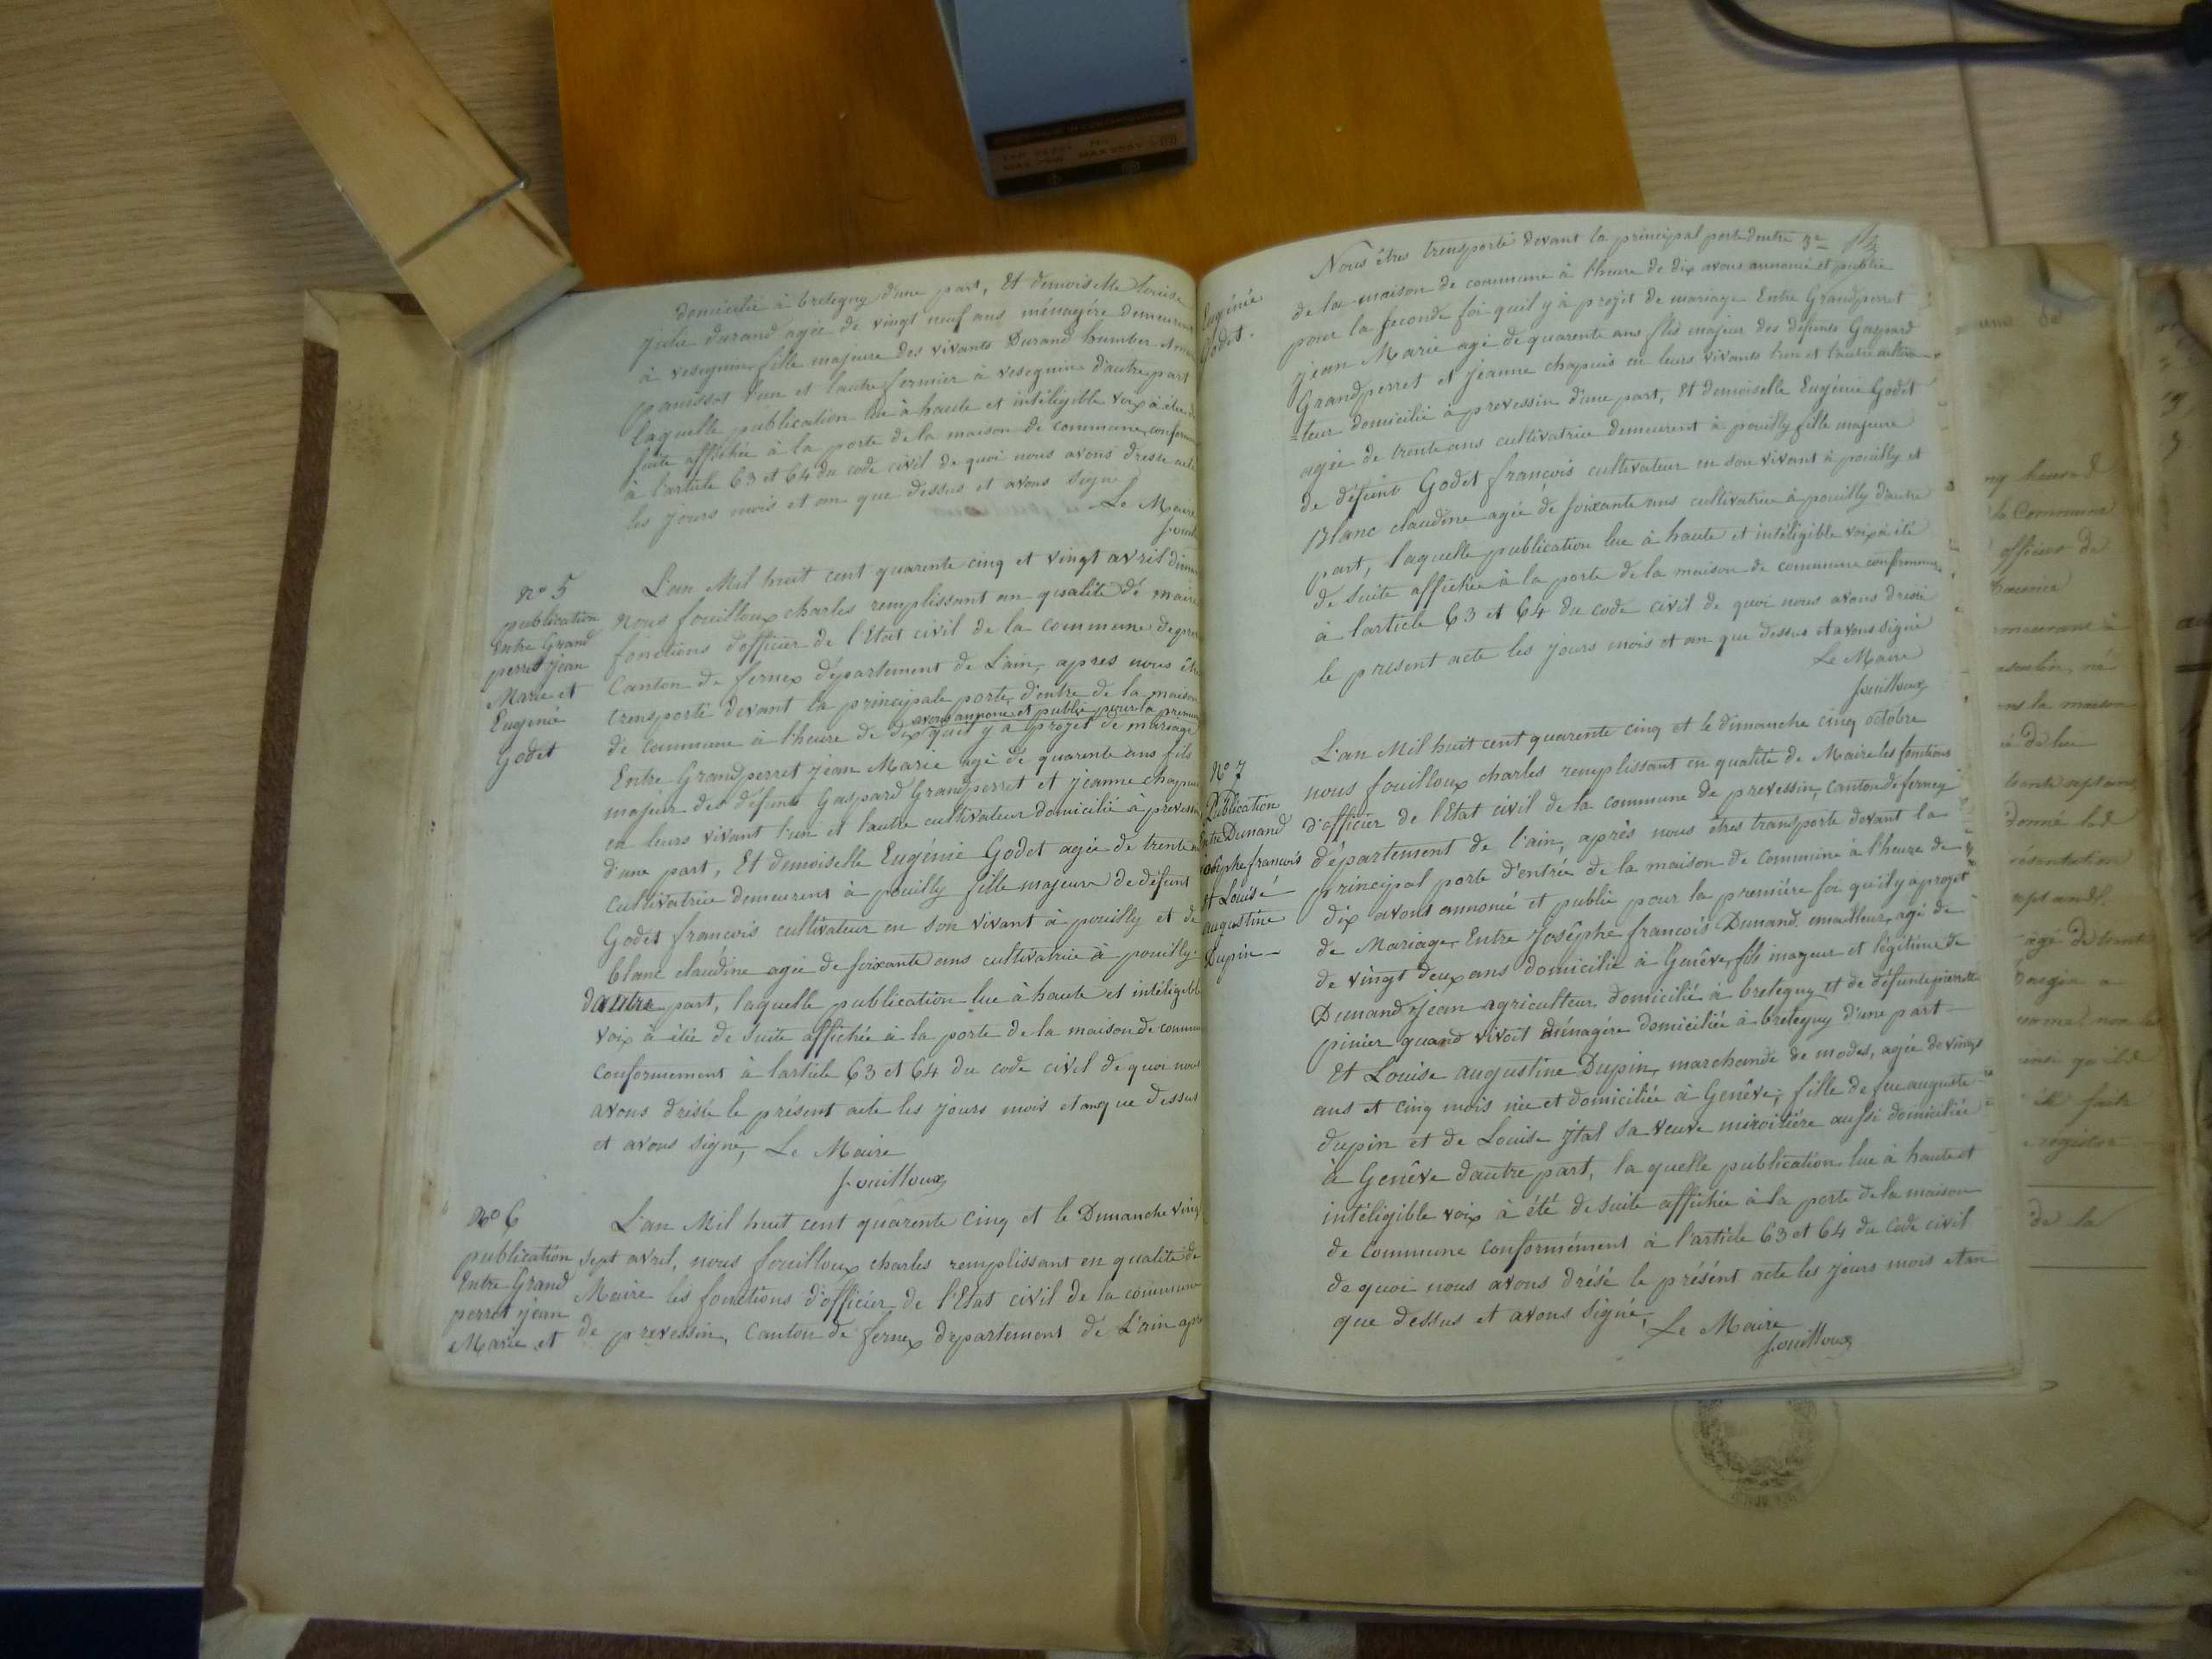 domicilié à bretegny d'une part, Et demoiselle louise
julie durand agée de vingt neuf ans ménagére demeurent
à vesegnin fille majeure des vivants Durand humber et
paussot l'un et lautre fermier à vesegnin d'autre part
laquelle publication lue à haute et intéligible voix à étée de
suite affichée à la porte de la maison de commune conform
à l'article 63 et 64 du code civil de quoi nous avons dressé acte
les jours mois et an que dessus et avons signé
Le Maire
n° 5
publication
Entre Grand
perret jean
Marie et
Eugenie
Godet
L'an Mil huit cent quarente cinq et vingt avril dim
nous fouilloux charles remplissant an qualité de maire
fonctions d'officier de l'Etat civil de la commune de pre
Canton de fernex département de L'ain, apres nous êtr
trensporté devant la principale porte d'entre de la maison
avons annoncé et publié pour la premi
de commune à l'heure de dix qu'il y a projet de mariage
Entre Grandperret jean Marie agé de quarente ans fils
majeur des défunts Gaspard Grandperret et jeanne chapui
en leurs vivant l'un et lautre cultivateur domicilié à prevessin
d'une part, Et demoiselle Eugénie Godet agée de trente
cultivatrice demeurent à pouilly fille majeure de défunt
Godet francois cultivateur en son vivant à pouilly et de
blanc claudine agée de soixante ans cultivatrice à pouilly
dautre part, laquelle publication lue à haute et intéligible
voix à étée de suite affichée à la porte de la maison de commu
conformement à larticle 63 et 64 du code civil de quoi nous
avons dréssé le présent acte les jours mois et an que dessus
et avons signé, Le Maire
fouilloux
N° 6
publication
Entre Grand
perret jean
Marie et
L'an Mil huit cent quarente cinq et le Dimanche vingt
sept avril, nous fouilloux charles remplissant en qualité de
Maire les fonctions d'officier de l'Etat civil de la commune
de prevessin, Canton de fernex département de L'ain apr
Eugénie
Godet.
Nous êtres trensporté devant la principal porte dentre 3e
de la maison de commune à l'heure de dix avons annoncé et publié
pour la seconde foi quil y à projet de mariage Entre Grandperret
jean Marie agé de quarente ans fils majeur des défunts Gaspard
Grandperret et jeanne chapuis en leurs vivants l'un et l'autre cultiva-
=teur domicilié à prevessin d'une part, Et demoiselle Eugénie Godet
agée de trente ans cultivatrice demeurent à pouilly fille majeure
de défunt Godet francois cultivateur en son vivant à pouilly et
Blanc claudine agée de soixante ans cultivatrice à pouilly d'autre
part, laquelle publication lue à haute et intéligible voix à été
de suite affichée à la porte de la maison de commune conformém
à larticle 63 et 64 du code civil de quoi nous avons dressé
le présent acte les jours mois et an que dessus et avons signé
Le Maire
fouilloux
N° 7
Publication
Entre Dunand
Joséphe francois
et Louise
augustine
Dupin
L'an Mil huit cent quarente cinq et le dimanche cinq octobre
nous fouilloux charles remplissant en qualité de Maire les fonctions
d'officier de l'Etat civil de la commune de prevessin, canton de ferney
département de l'ain, aprés nous êtres transporté devant la
principal porte d'entrée de la maison de commune à l'heure de
dix avons annoncé et publié pour la premiére foi qu'il y à projet
de Mariage, Entre Joséphe francois Dunand émailleur, agé de
de vingt deux ans domicilié à Genêve, fils majeur et légitime de
Dunand jean agriculteur domicilié à bretegny et de défunte pierrette
pinier quand vivoit ménagére domiciliée à bretegny d'une part
Et Louise augustine Dupin, marchande de modes, agée de vingt
ans et cinq mois née et domiciliée à Genêve, fille de feu auguste
dupin et de Louise jtal sa veuve miroitiére aussi domiciliée
à Genêve dautre part, la quelle publication lue à haute et
intéligible voix à été de suite affichée à la porte de la maison
de commune conformément à l'article 63 et 64 du code civil
de quoi nous avons drésé le présént acte les jours mois et an
que dessus et avons signé,
Le Maire
fouilloux
la Commune
officier de
la maison
de la